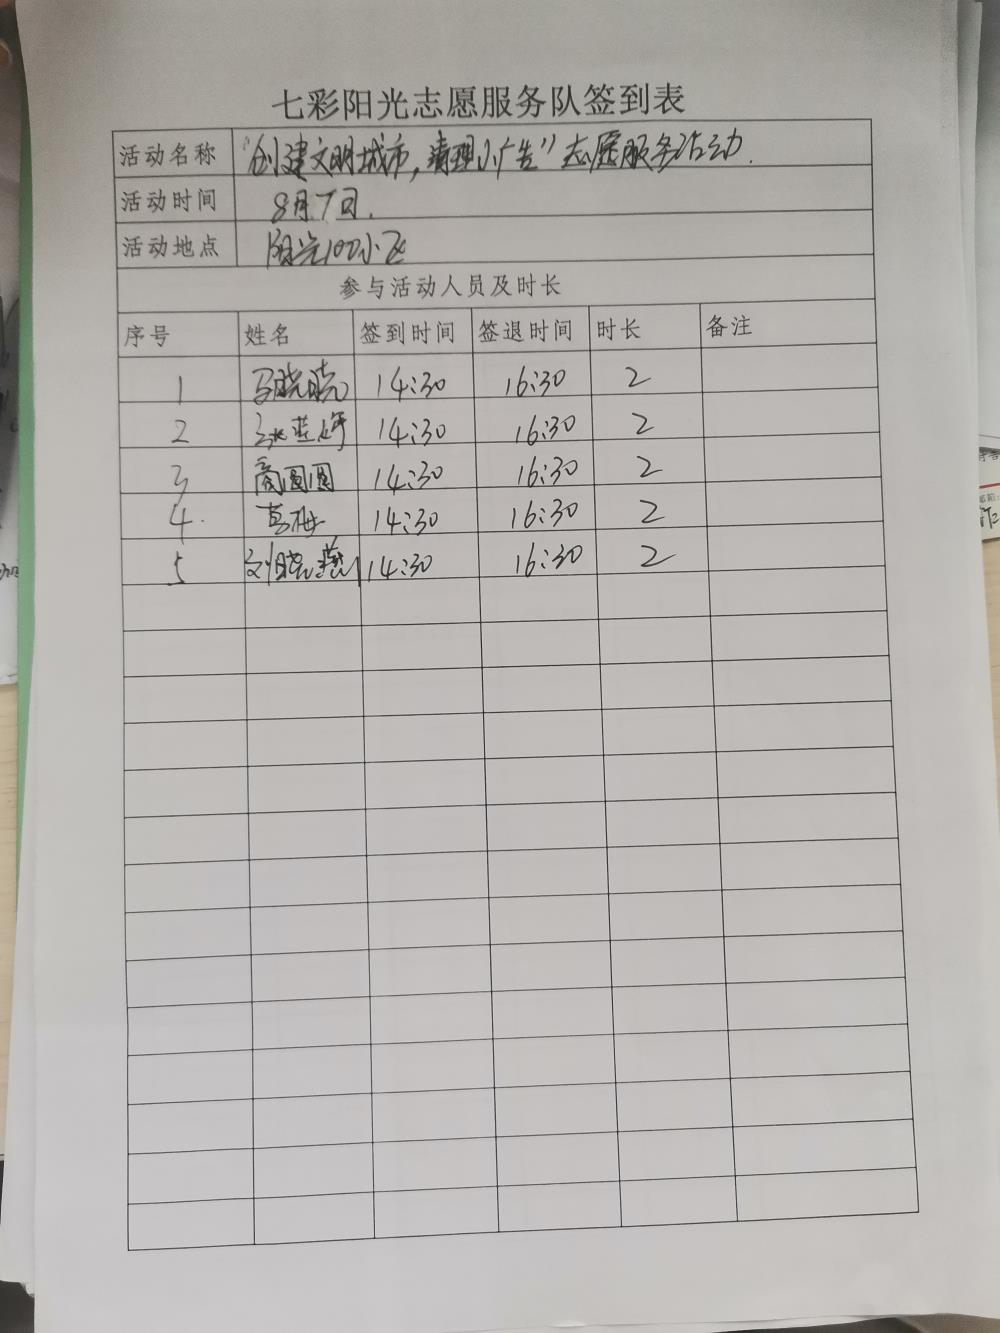 七彩阳光志愿服务队签到表
活动名称 "创建文明城市,清理小广告"志愿服务活动.
活动时间 8月7日.
活动地点 阳光100小区
参与活动人员及时长
序号 姓名 签到时间 签退时间 时长 备注
1 马晓晓 14:30 16:30 2
2 14:30 16:30 2
3 商圆圆 14:30 16:30 2
4. 14:30 16:30 2
5 刘晓燕 14:30 16:30 2